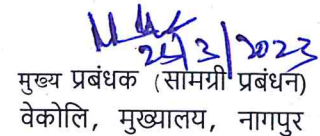 25/3/2023
मुख्य प्रबंधक (सामग्री प्रबंधन)
वेकोलि, मुख्यालय, नागपुर